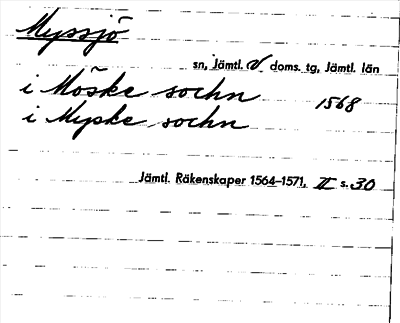 Myssjö
sn, Jämtl. V doms. tg, Jämtl. län
i Möske sochn 1568
i Myske sochn
Jämtl. Räkenskaper 1564–1571, II s. 30